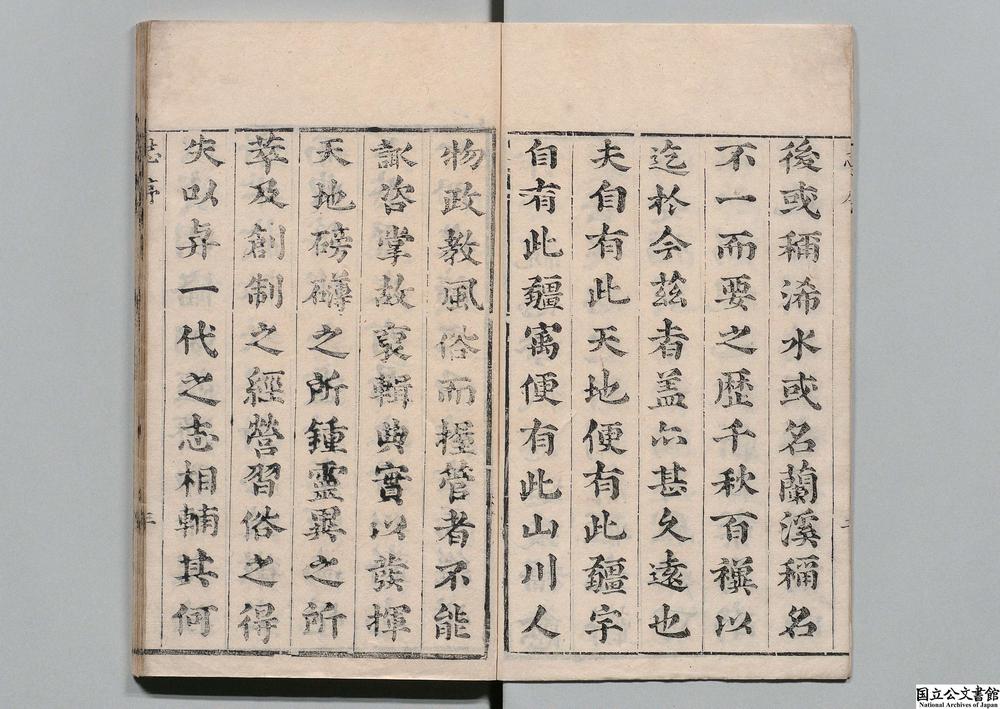 後或稱浠水或名蘭溪稱名
不一而要之歴千秋百禩以
迄於今茲者盖亦甚久遠也
夫自有此天地便有此疆宇
自有此疆寓便有此山川人
物政教風俗而握管者不能
諏咨掌故裒輯典實以發揮
天地磅礴之所鍾靈異之所
萃及創制之經營習俗之得
失以昇一代之志相輔其何
志序
国立公文書館
National Archives of Japan